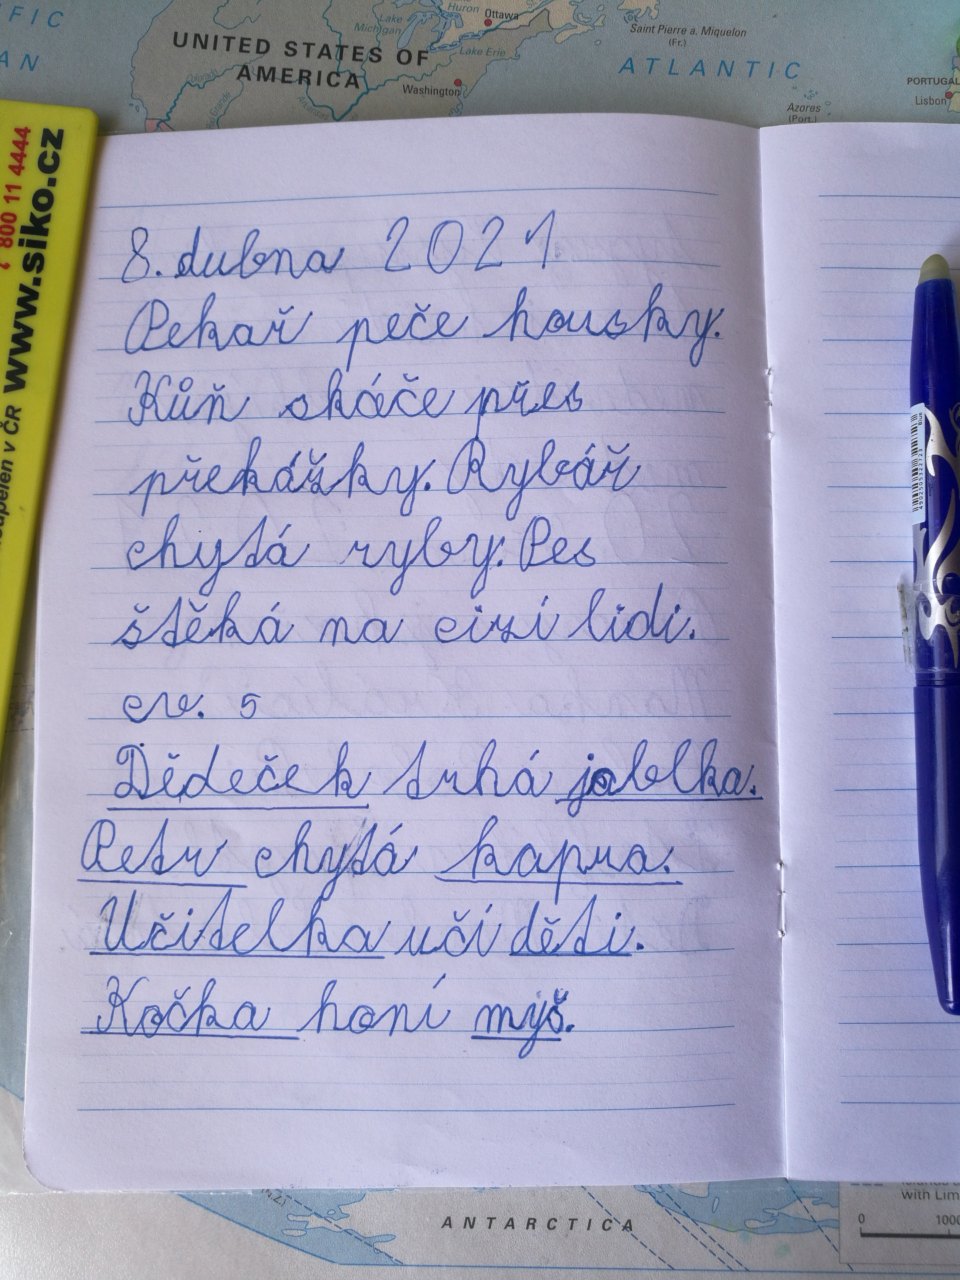 FIC
AN
UNITED STATES OF
AMERICA
Lake
Michigan
Lake
Huron
Ottawa
Lake Erie
Washington
Saint Pierre a. Miquelon
(Fr.)
ATLANTIC
Azores
(Port.)
PORTUGAL
Lisbon
800 11 4444
www.siko.cz
koupelen v ČR
8. dubna 2021
Pekař peče housky.
Kůň skáče přes
překážky. Rybář
chytá ryby. Pes
štěká na cizí lidi.
cv. 5
Dědeček trhá jablka.
Petr chytá kapra.
Učitelka učí děti.
Kočka honí myš.
ANTARCTICA
with Lim
0 1000